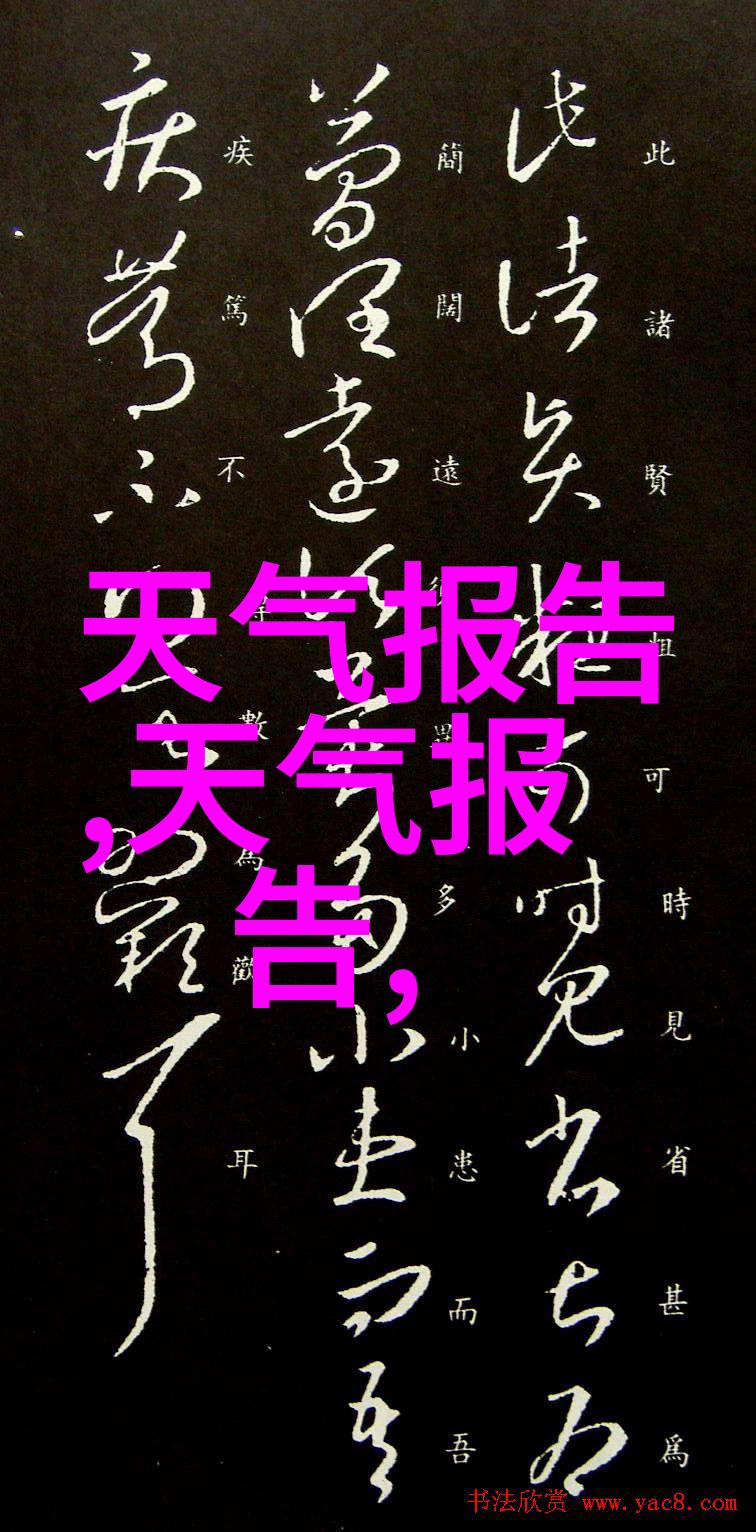 此諸賢粗可時見省甚爲
簡闊遠多小患而吾
疾篤不得數爲歡耳
天气报告
,天气报
告,
书法欣赏 www.yac8.com